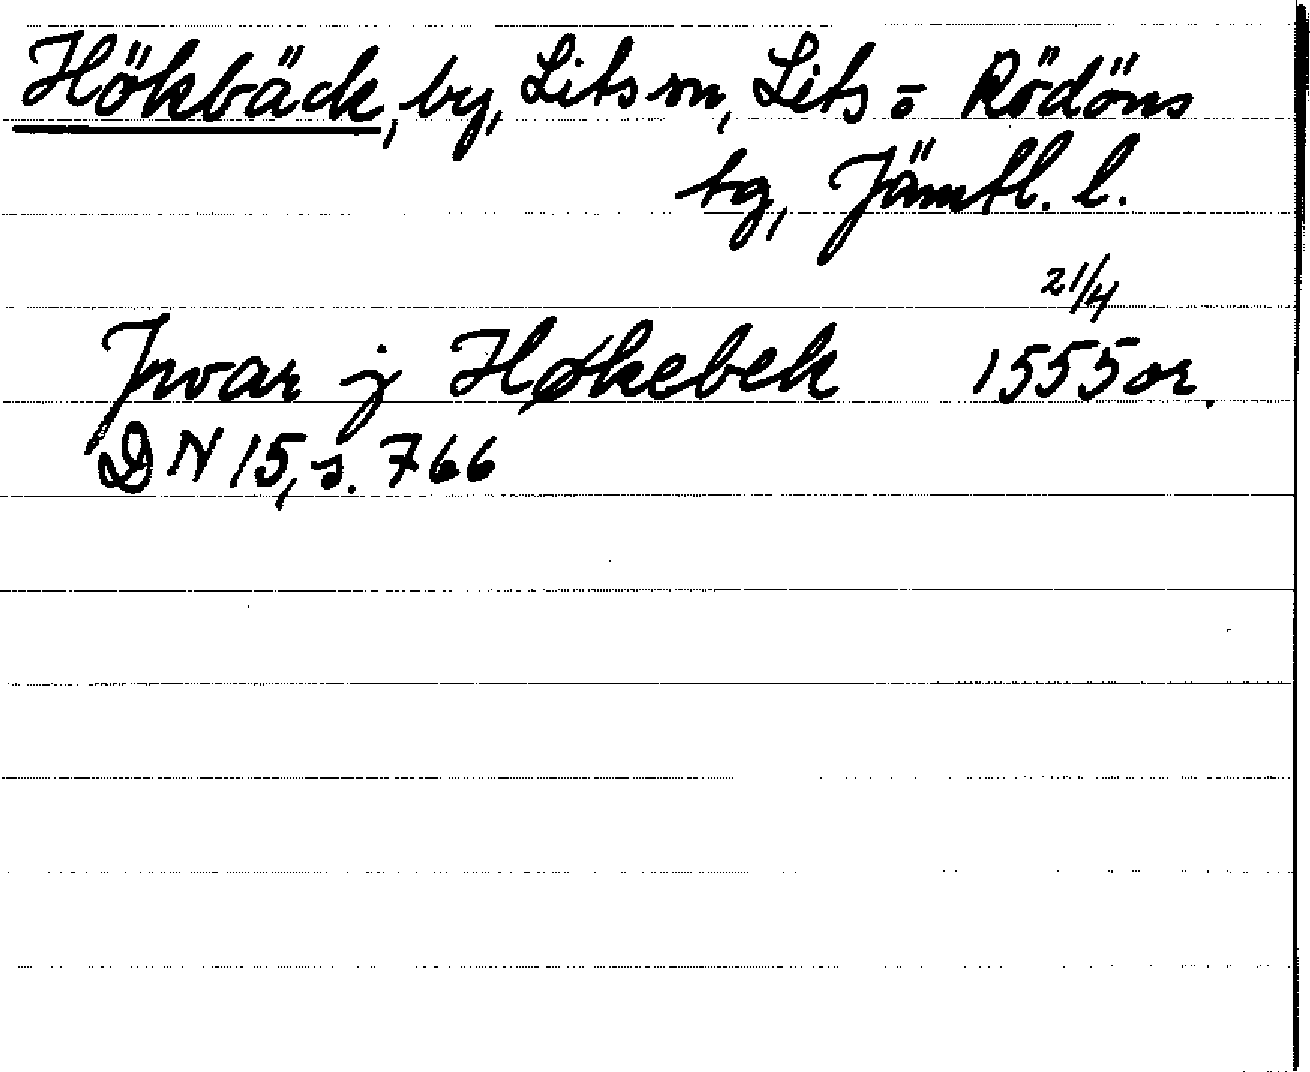 Hökbäck, by, Lits sn, Lits o Rödöns
tg, Jämtl. l.
21/4
Jwar j Høkebek 1555 or.
DN 15, s. 766